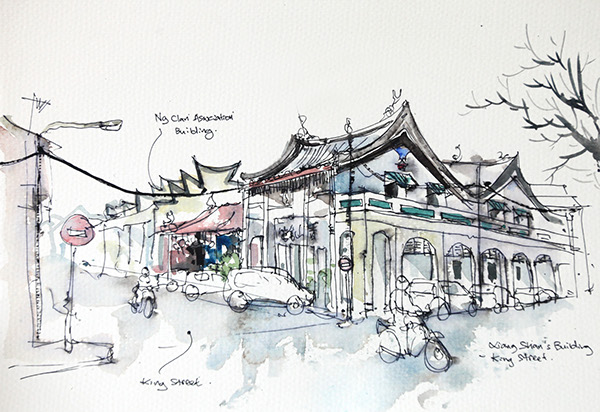 Ng Clan Association
Building.
King Street.
Qiang Shan's Building
- King Street.